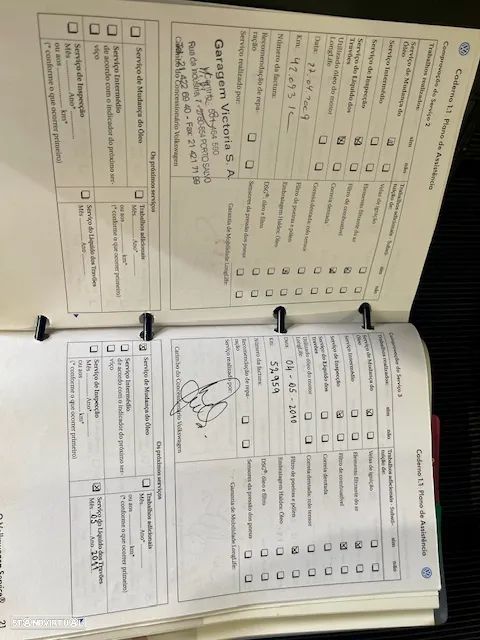 Caderno 1.1 Plano de Assistência
Comprovação de Serviço 2
Trabalhos realizados:
sim não
Serviço de Mudança do Óleo
Serviço Intermédio
Serviço de Inspecção
Serviço do Líquido dos Travões
Utilizado óleo do motor LongLife
Data:
Km:
Número da factura:
Recomendação de reparação
Serviço realizado por:
Trabalhos adicionais - Substituição de:
sim não
Velas de ignição
Elemento filtrante do ar
Filtro de combustível
Correia dentada
Correia dentada: rolo tensor
Filtro de poeiras e pólen
Embraiagem Haldex: Óleo
DSG®: óleo e filtro
Sensores da pressão dos pneus
Garantia de Mobilidade LongLife:
Garagem Victoria S. A.
Carimbo do Concessionário Volkswagen
Os próximos serviços
Serviço de Mudança do Óleo
Serviço Intermédio
de acordo com o indicador do próximo serviço
Serviço de Inspecção
Mês Ano
ou aos km*
(* conforme o que ocorrer primeiro)
Trabalhos adicionais
Mês Ano
ou aos km*
(* conforme o que ocorrer primeiro)
Serviço do Líquido dos Travões
Mês Ano
Caderno 1.1 Plano de Assistência
Comprovação de Serviço 3
Trabalhos realizados:
sim não
Serviço de Mudança do Óleo
Serviço Intermédio
Serviço de Inspecção
Serviço do Líquido dos Travões
Utilizado óleo do motor LongLife
Data: 04-05-2010
Km: 52.959
Número da factura:
Recomendação de reparação
Serviço realizado por:
Trabalhos adicionais - Substituição de:
sim não
Velas de ignição
Elemento filtrante do ar
Filtro de combustível
Correia dentada
Correia dentada: rolo tensor
Filtro de poeiras e pólen
Embraiagem Haldex: Óleo
DSG®: óleo e filtro
Sensores da pressão dos pneus
Garantia de Mobilidade LongLife:
Carimbo do Concessionário Volkswagen
Os próximos serviços
Serviço de Mudança do Óleo
Serviço Intermédio
de acordo com o indicador do próximo serviço
Serviço de Inspecção
Mês Ano
ou aos km*
(* conforme o que ocorrer primeiro)
Trabalhos adicionais
Mês Ano
ou aos km*
(* conforme o que ocorrer primeiro)
Serviço do Líquido dos Travões
Mês 05 Ano 2011
STANDVIRTUAL